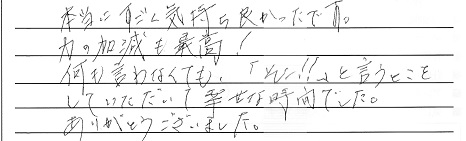 本当にすごく気持ち良かったです。
力の加減も最高!
何も言わなくても、「そこ!!」と言うとこを
していただいて幸せな時間でした。
ありがとうございました。